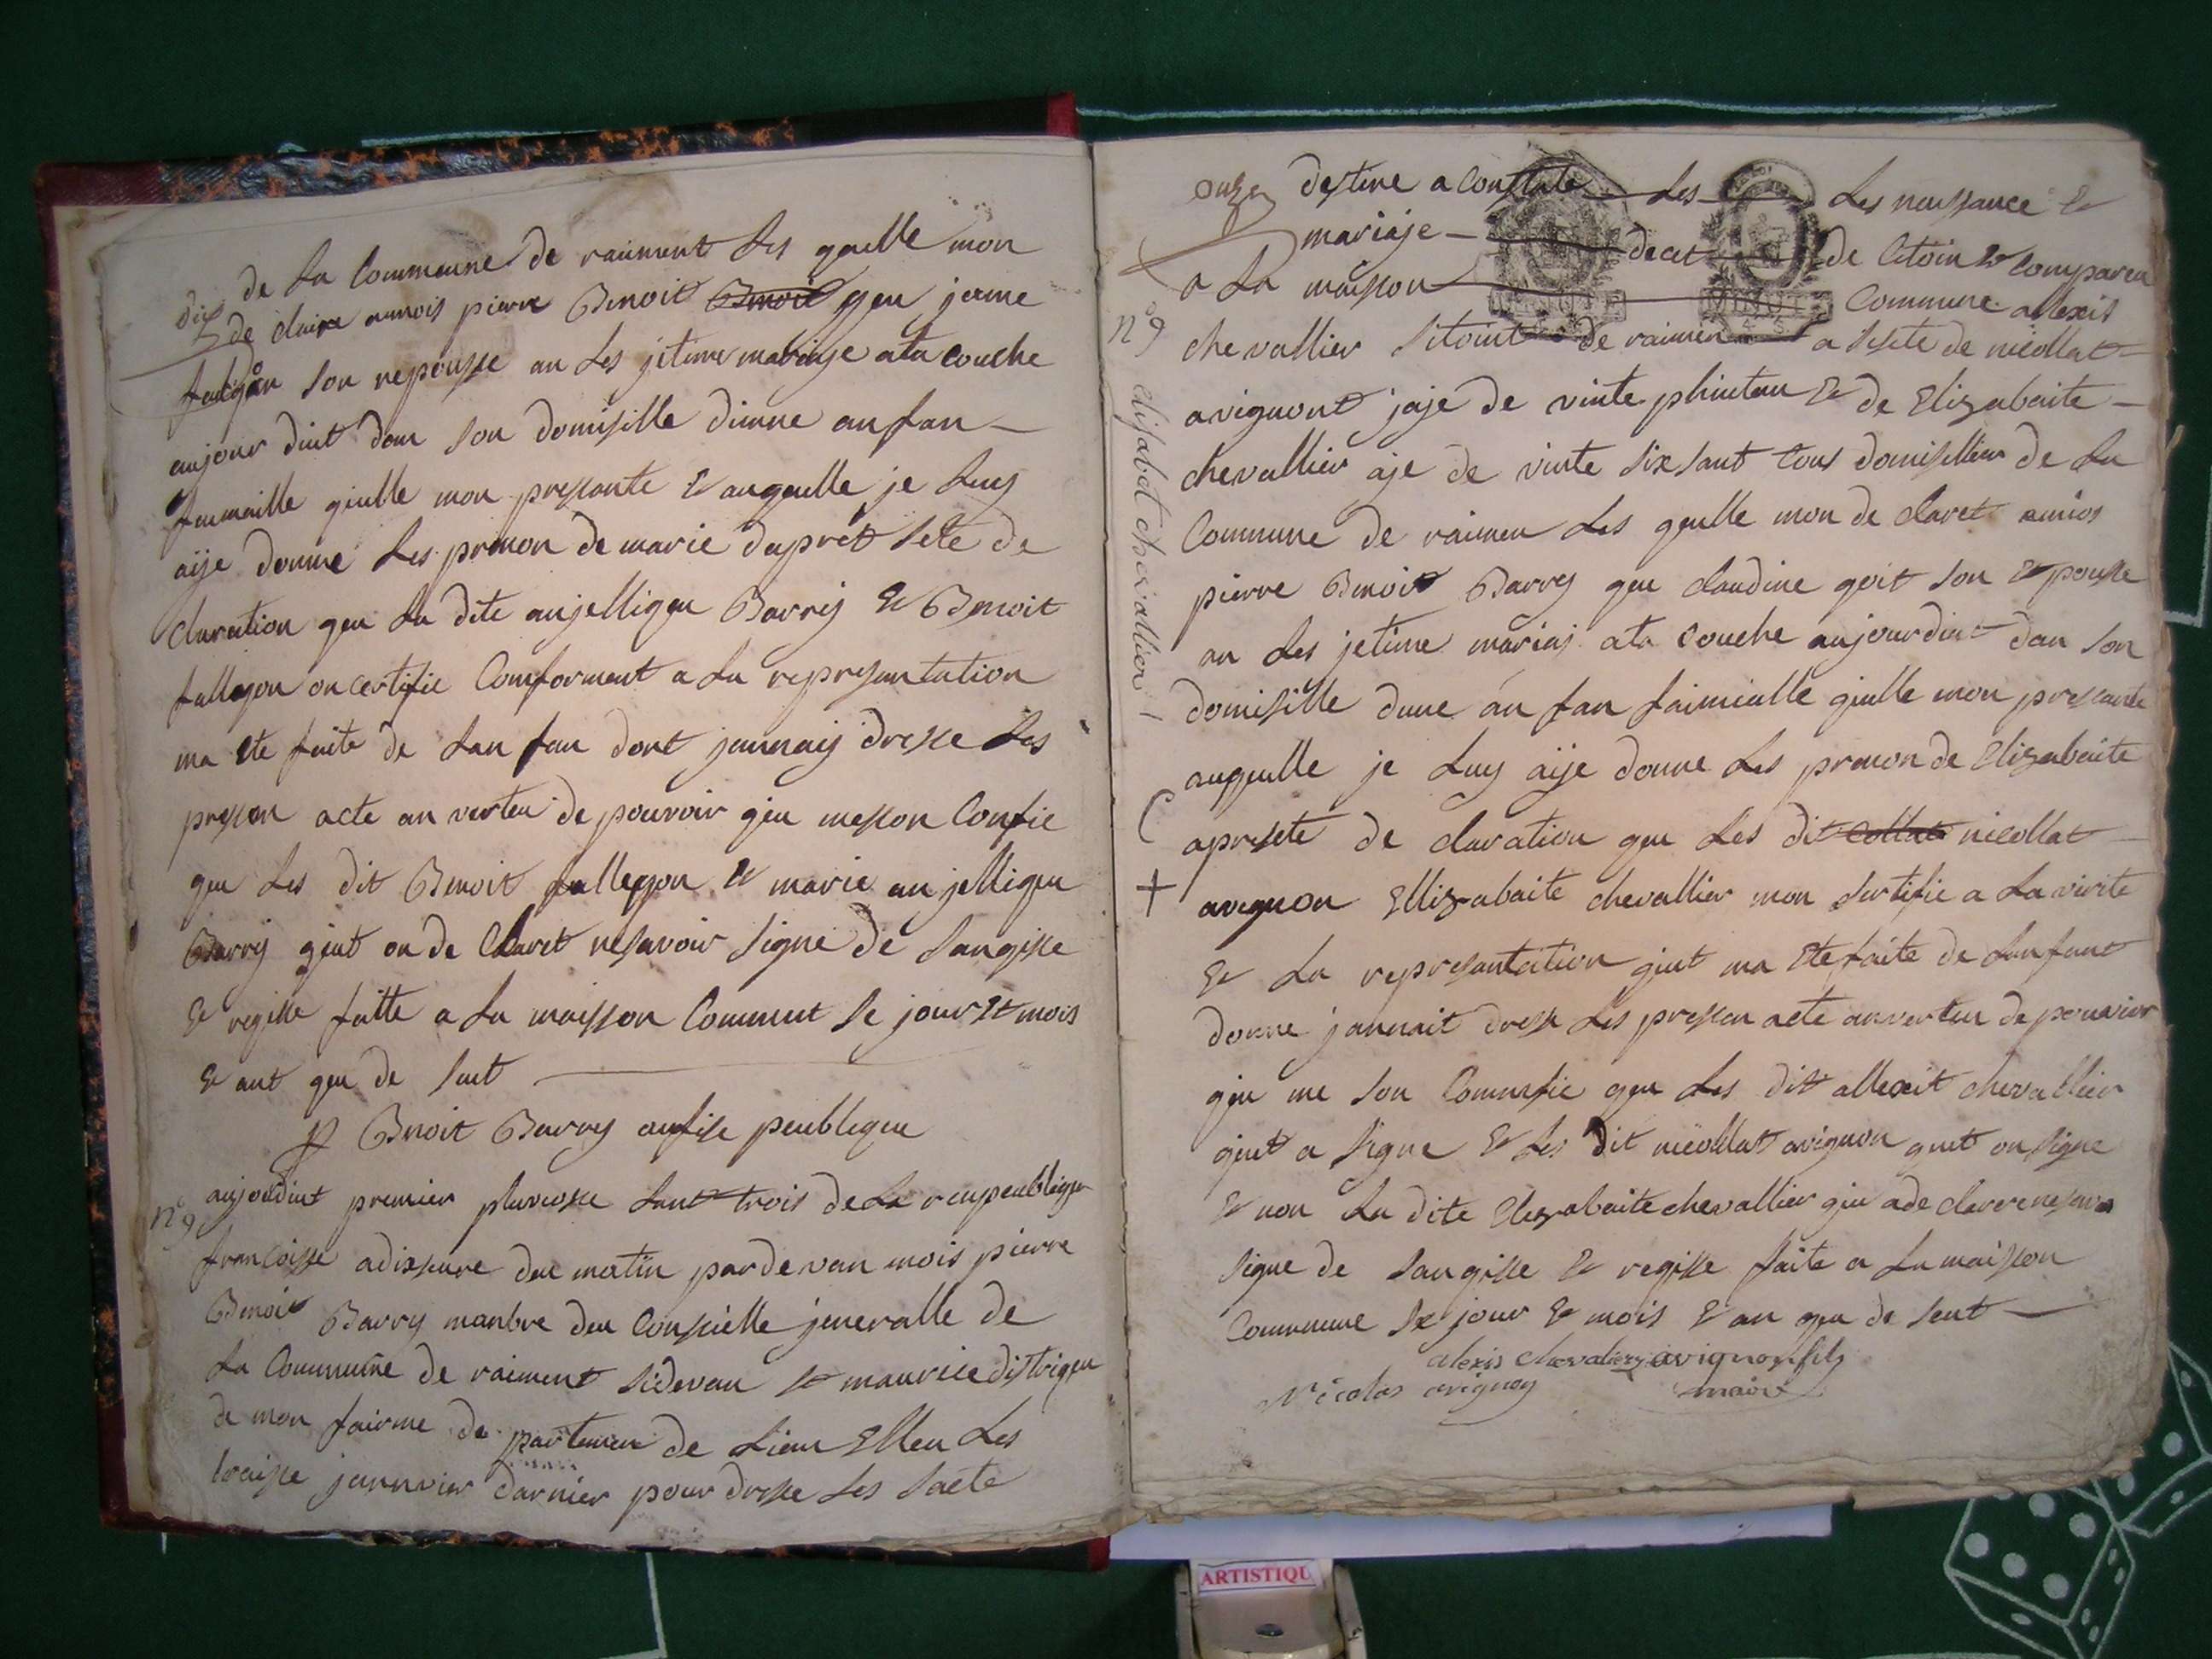 dix
de La Commeune de raimont Les quelle mon
de claire amois pierre Benoit Benoit qeu jeme
son nepousse an Les jetime mariaje ata couche
aujour duit dan son domisille dunne anfan
faimaille qiulle mon pressante & auqeulle je Luy
aije donne Les prenon de marie daprét sete de
claration qeu La dite anjelliqeu Barrÿ & Benoit
fallegon on certifie Comforment a La represantation
ma ete faite de Lan fan dont jannaiÿ dresse Les
pressen acte an verteu de pouvoir qeu messon Confie
qeu Les dit Benoit fallegon & marie anjelliqeu
Barrÿ qiut on de Claret nesavoir signe de sanqisse
& reqisse faitte a La maisson Commeut se jour & mois
& ant qeu de sut
p Benoit Barry aufise peubleqeu
n° 9
aujourdiut premier pluviosse Lant trois de La reupeubliqeu
françoisse adixseure deu matin pardevan mois pierre
Benoit Barry manbre deu Conseielle jeneralle de
La Commeune de raiment sidevan st mauricedistriqeu
de mon fairme de partemen de Lieu Elleu Les
traisse jannvier darnier pour dresse Les Sacte
onze
destine a Constate Les Les naissance &
mariaje decet de Citoin & compareu
a La maisson Commune allexis
n° 9
chevallier sitoint de raimen a siste de nicollat
avignont jaje de vinte phiutan & de Elizabaite
chevallier aje de vinte sixsant tous domisillier de La
Commune de raimen Les qeulle mon de claret amios
pierre Benoit Barry qeu claudine goit son & pousse
an Les jetime mariaj ata couche aujourdiut dan son
domisille dune an fan faimialle qiulle mon pressante
auqeulle je Luy aije donne Les prenon de Elizabaite
apresete de claration qeu Les dit collat nicollat
+ avegnon Ellizabaite chevallier mon sertifie a La verite
& La represantation qiut ma Ete faite de Lanfant
donne jannait dresse Les pressen acte anverteu de pouvoir
qeu me son Commefie qeu Les dit allexit chevallier
qiut a signe & Les dit nicollat avignon qiut on signe
& non La dite Elizabaite chevallier qiu ade clarre nesavoi
signe de sanqisse & reqisse faite a La maisson
Commune se jour & mois & an qeu de seut
alexis chevalier avignon fils
Nicolas avignon maire
elisabet chevallier
ARTISTIQU